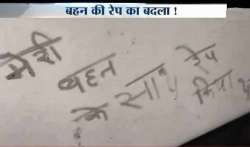 बहन की रेप का बदला !
मेरी
बहन
के साथ रेप
किया